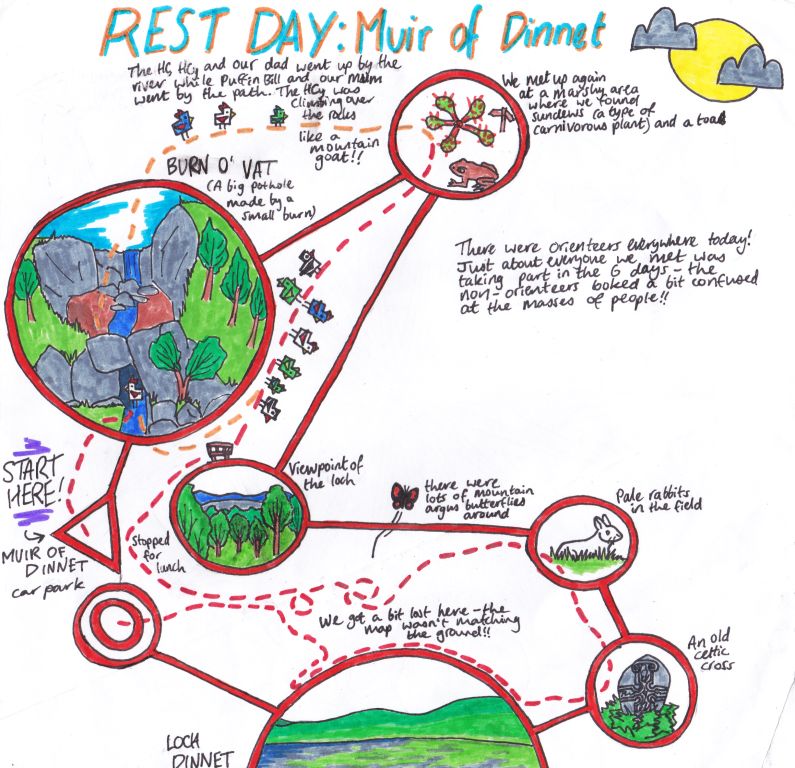 REST DAY: Muir of Dinnet
The HG, HCy and our dad went up by the
river while Puffin Bill and our mum
went by the path. The HCy was
climbing over
the rocks
like a
mountain
goat!!
We met up again
at a marshy area
where we found
sundews (a type of
carnivorous plant) and a toad
BURN O' VAT
(A big pothole
made by a
small burn)
There were orienteers everywhere today!
Just about everyone we met was
taking part in the 6 days - the
non-orienteers looked a bit confused
at the masses of people!!
START
HERE!
MUIR OF
DINNET
car park
Stopped
for
lunch
Viewpoint of
the loch
there were
lots of mountain
argus butterflies
around
Pale rabbits
in the field
We got a bit lost here - the
map wasn't matching
the ground!!
An old
celtic
cross
LOCH
DINNET